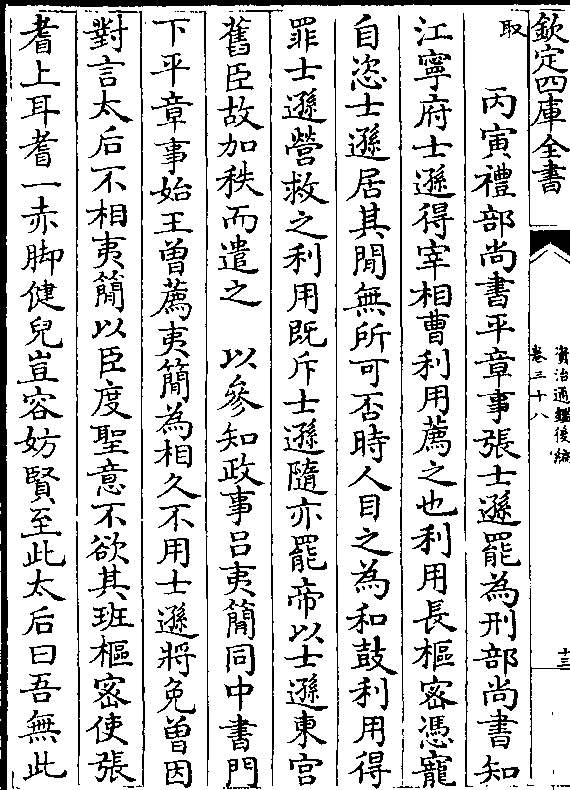 欽定四庫全書
資治通鑑後編
卷三十八
十三
取
丙寅禮部尚書平章事張士遜罷為刑部尚書知
江寧府士遜得宰相曹利用薦之也利用長樞密憑寵
自恣士遜居其間無所可否時人目之為和鼓利用得
罪士遜營救之利用既斥士遜隨亦罷帝以士遜東宮
舊臣故加秩而遣之　以參知政事呂夷簡同中書門
下平章事始王曾薦夷簡為相久不用士遜將免曾因
對言太后不相夷簡以臣度聖意不欲其班樞密使張
耆上耳耆一赤脚健兒豈容妨賢至此太后曰吾無此